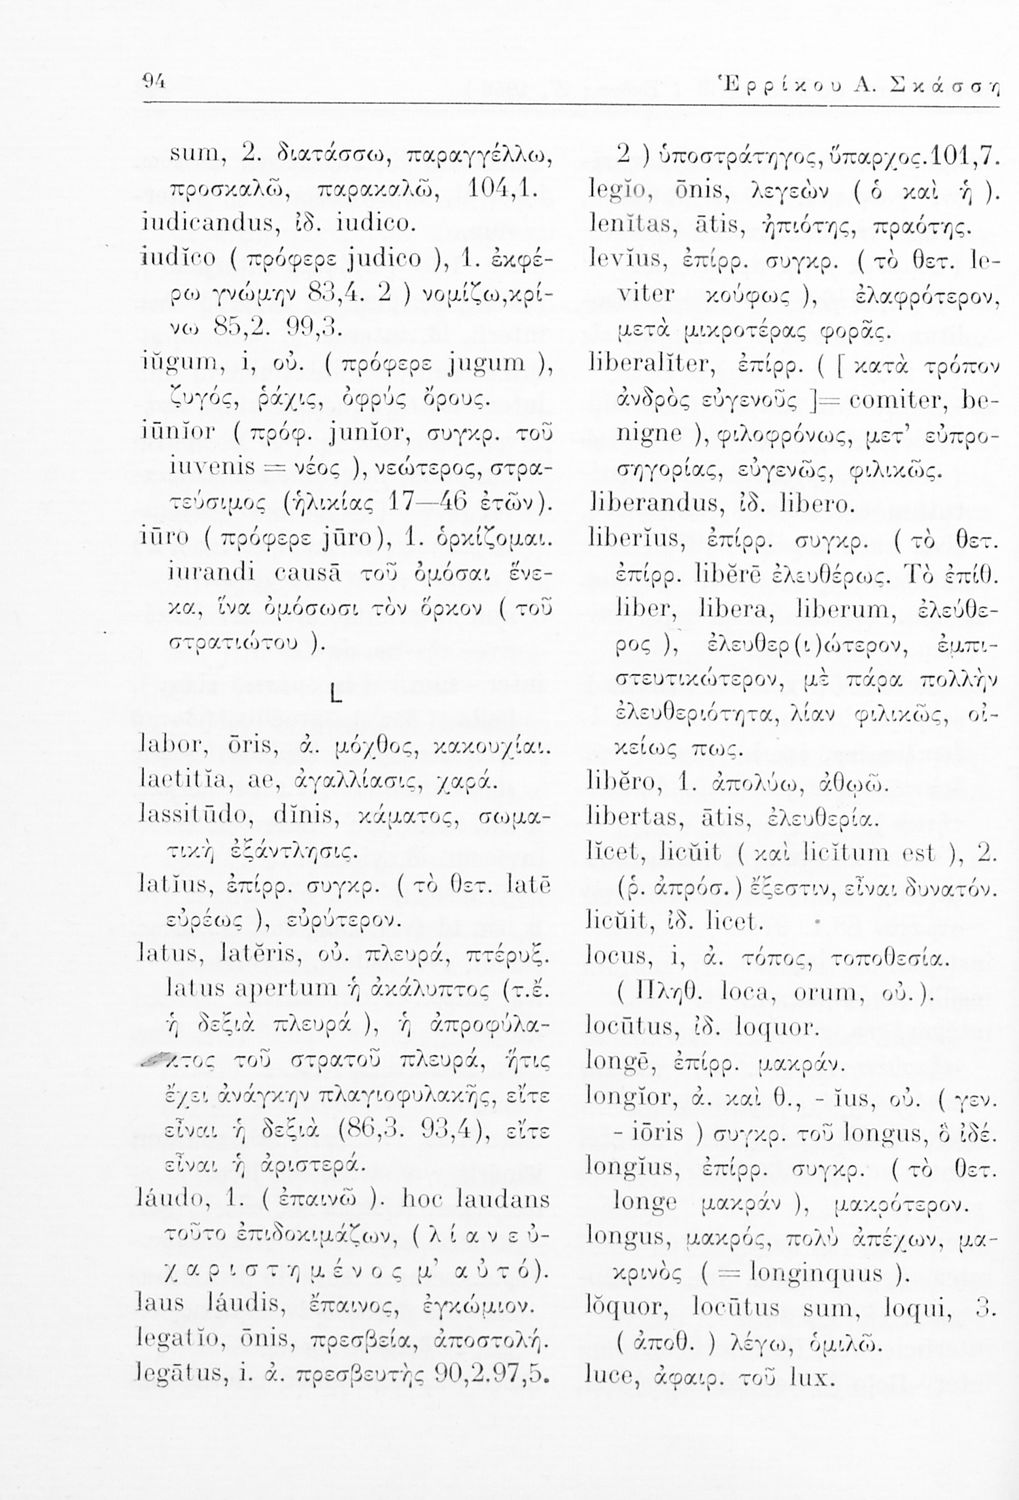 94
Ἑρρίκου Α. Σκάσση
sum, 2. διατάσσω, παραγγέλλω,
προσκαλῶ, παρακαλῶ, 104,1.
iudicandus, ἰδ. iudico.
iudĭco ( πρόφερε judico ), 1. ἐκφέ-
ρω γνώμην 83,4. 2 ) νομίζω,κρί-
νω 85,2. 99,3.
iŭgum, i, οὐ. ( πρόφερε jugum ),
ζυγός, ῥάχις, ὀφρύς ὄρους.
iūnĭor ( πρόφ. junĭor, συγκρ. τοῦ
iuvenis = νέος ), νεώτερος, στρα-
τεύσιμος (ἡλικίας 17—46 ἐτῶν).
iūro ( πρόφερε jūro), 1. ὁρκίζομαι.
iurandi causā τοῦ ὀμόσαι ἕνε-
κα, ἵνα ὀμόσωσι τὸν ὅρκον ( τοῦ
στρατιώτου ).
L
labor, ōris, ἀ. μόχθος, κακουχίαι.
laetitĭa, ae, ἀγαλλίασις, χαρά.
lassitūdo, dĭnis, κάματος, σωμα-
τικὴ ἐξάντλησις.
latĭus, ἐπίρρ. συγκρ. ( τὸ θετ. latē
εὐρέως ), εὐρύτερον.
latus, latĕris, οὐ. πλευρά, πτέρυξ.
latus apertum ἡ ἀκάλυπτος (τ.ἔ.
ἡ δεξιὰ πλευρά ), ἡ ἀπροφύλα-
κτος τοῦ στρατοῦ πλευρά, ἥτις
ἔχει ἀνάγκην πλαγιοφυλακῆς, εἴτε
εἶναι ἡ δεξιὰ (86,3. 93,4), εἴτε
εἶναι ἡ ἀριστερά.
láudo, 1. ( ἐπαινῶ ). hoc laudans
τοῦτο ἐπιδοκιμάζων, ( λίαν εὐ-
χαριστημένος μ’ αὐτό).
laus láudis, ἔπαινος, ἐγκώμιον.
legatĭo, ōnis, πρεσβεία, ἀποστολή.
legātus, i. ἀ. πρεσβευτὴς 90,2.97,5.
2 ) ὑποστράτηγος, ὕπαρχος.101,7.
legĭo, ōnis, λεγεὼν ( ὁ καὶ ἡ ).
lenĭtas, ātis, ἠπιότης, πραότης.
levĭus, ἐπίρρ. συγκρ. ( τὸ θετ. le-
viter κούφως ), ἐλαφρότερον,
μετὰ μικροτέρας φορᾶς.
liberalĭter, ἐπίρρ. ( [ κατὰ τρόπον
ἀνδρὸς εὐγενοῦς ]= comiter, be-
nigne ), φιλοφρόνως, μετ’ εὐπρο-
σηγορίας, εὐγενῶς, φιλικῶς.
liberandus, ἰδ. libero.
liberĭus, ἐπίρρ. συγκρ. ( τὸ θετ.
ἐπίρρ. libĕrē ἐλευθέρως. Τὸ ἐπίθ.
liber, libera, liberum, ἐλεύθε-
ρος ), ἐλευθερ(ι)ώτερον, ἐμπι-
στευτικώτερον, μὲ πάρα πολλὴν
ἐλευθεριότητα, λίαν φιλικῶς, οἰ-
κείως πως.
libĕro, 1. ἀπολύω, ἀθῳῶ.
libertas, ātis, ἐλευθερία.
lĭcet, licŭit ( καὶ licĭtum est ), 2.
(ῥ. ἀπρόσ.) ἔξεστιν, εἶναι δυνατόν.
licŭit, ἰδ. licet.
locus, i, ἀ. τόπος, τοποθεσία.
( Πληθ. loca, orum, οὐ.).
locūtus, ἰδ. loquor.
longē, ἐπίρρ. μακράν.
longĭor, ἀ. καὶ θ., - ĭus, οὐ. ( γεν.
- iōris ) συγκρ. τοῦ longus, ὃ ἰδέ.
longĭus, ἐπίρρ. συγκρ. ( τὸ θετ.
longe μακράν ), μακρότερον.
longus, μακρός, πολὺ ἀπέχων, μα-
κρινὸς ( = longinquus ).
lŏquor, locūtus sum, loqui, 3.
( ἀποθ. ) λέγω, ὁμιλῶ.
luce, ἀφαιρ. τοῦ lux.